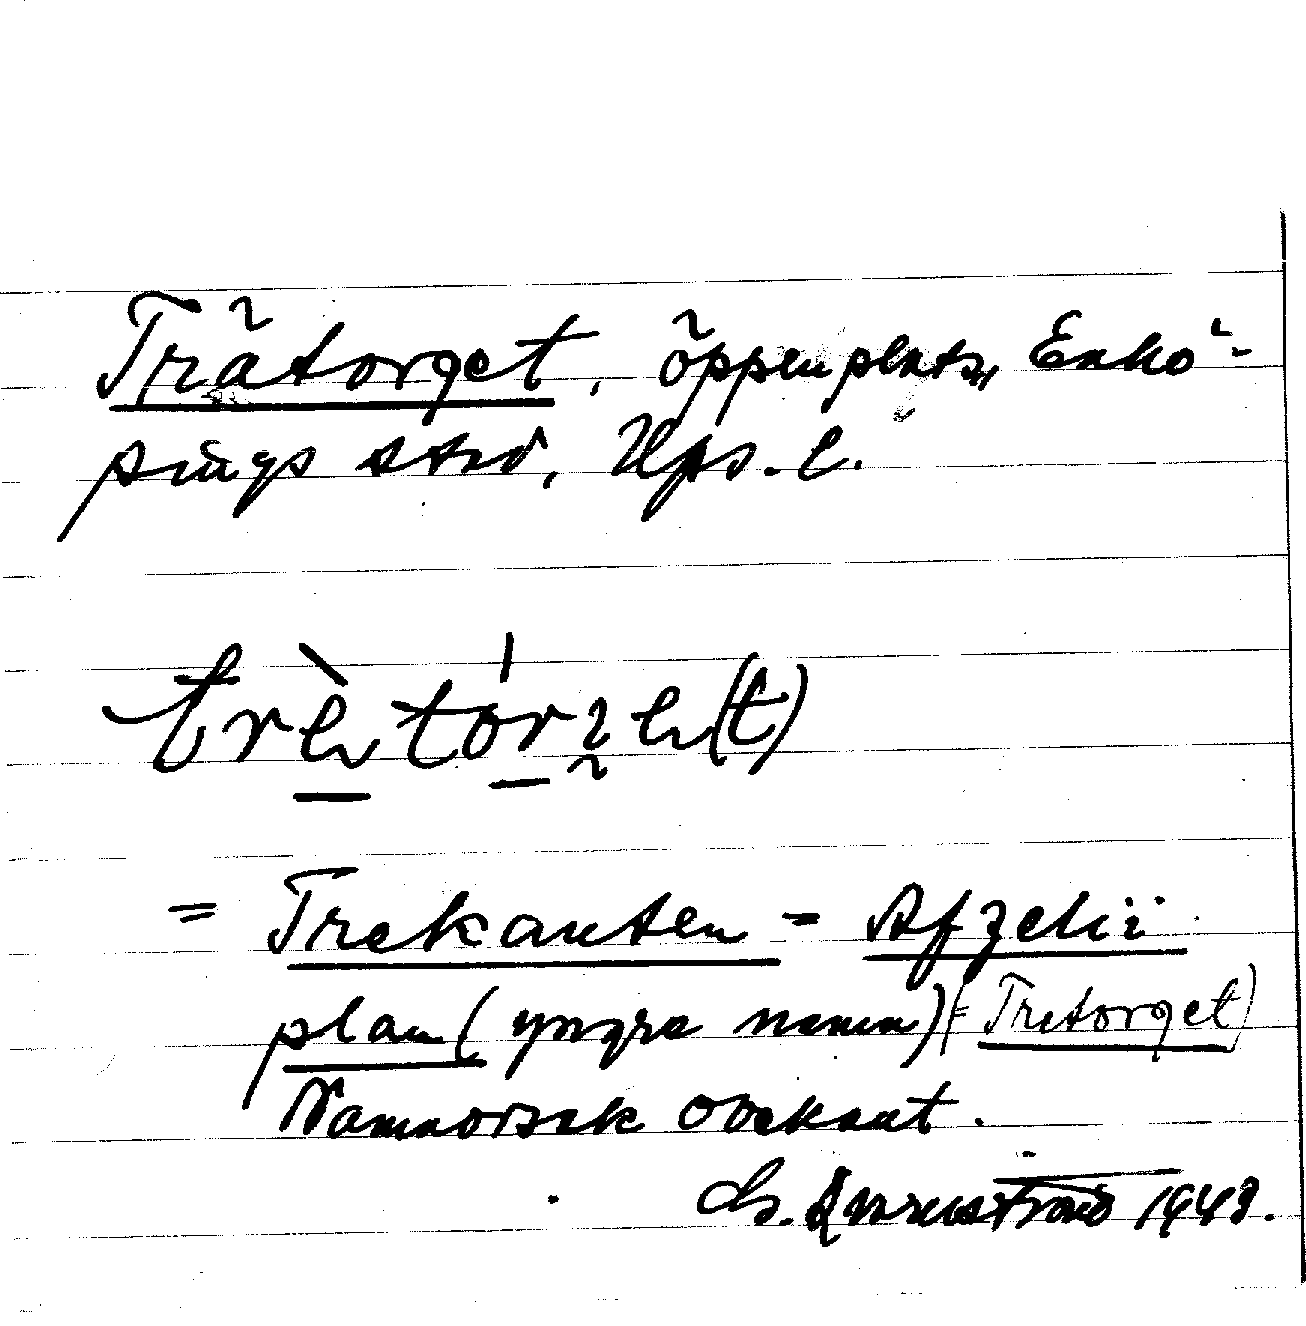 Trätorget, öppen plats, Enkö-
pings stad, Ups. l.
trètórge(t)
= Trekanten = Afzelii
plan (yngre namn) (= Tretorget)
Namnorsak obekant.
1943.